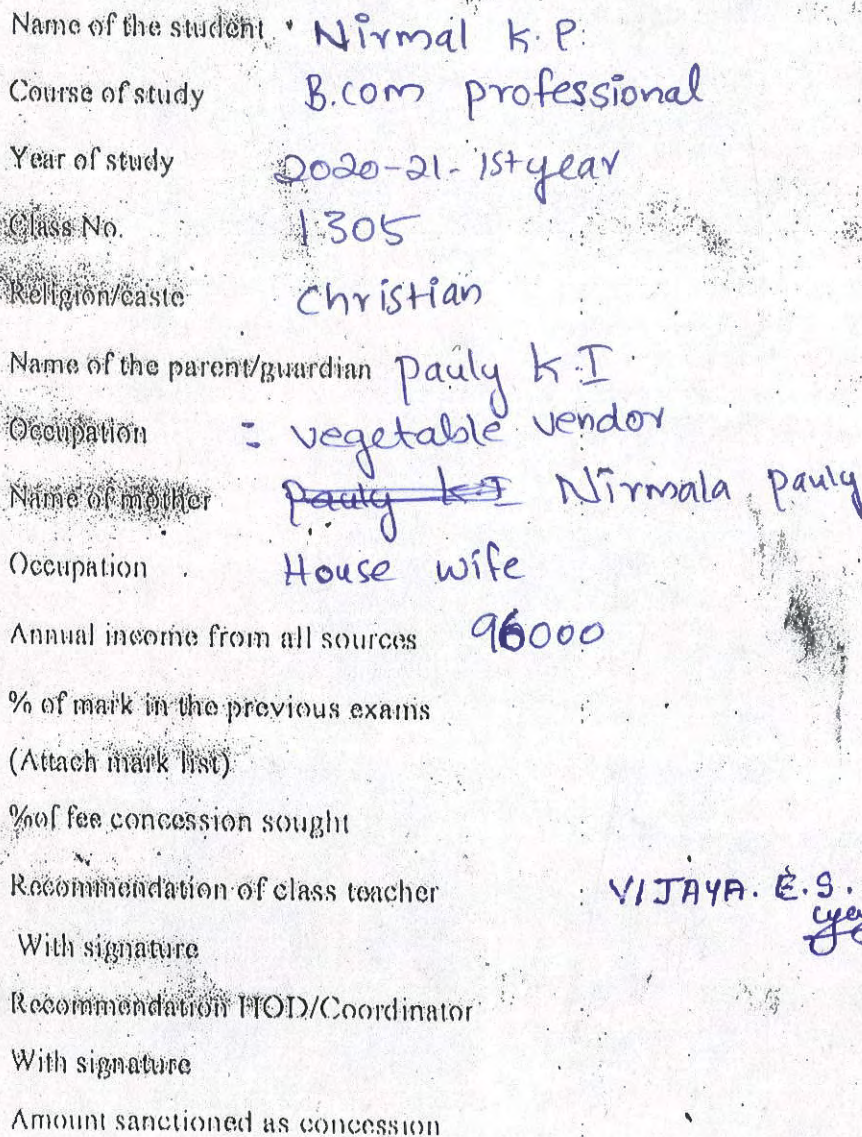 Name of the student Nirmal K.P.
Course of study B.com professional
Year of study 2020-21-1st year
Class No. 1305
Religion/caste Christian
Name of the parent/guardian Pauly K.I
Occupation : vegetable vendor
Name of mother Pauly K.I Nirmala Pauly
Occupation House wife
Annual income from all sources 96000
% of mark in the previous exams :
(Attach mark list)
%of fee concession sought
Recommendation of class teacher : VIJAYA. E.S.
With signature
Recommendation HOD/Coordinator
With signature
Amount sanctioned as concession